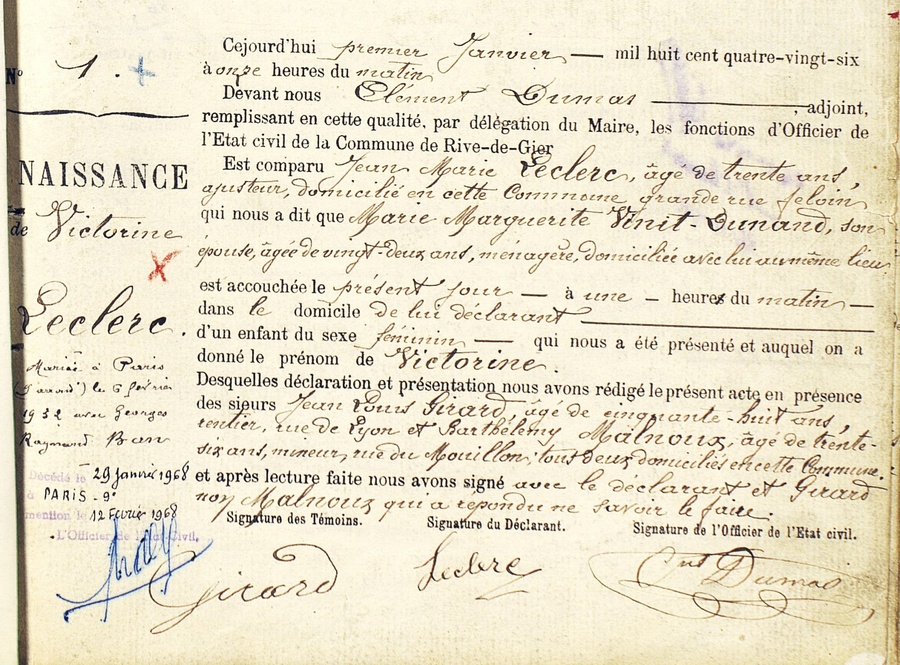 N° 1.
NAISSANCE
de Victorine
Leclerc.
Mariée à Paris
le 6 février
1932 avec Georges
Raymond
Décédé le 29 Janvier 1968
à PARIS - 9e
mention le 12 Février 1968
L'Officier de l'Etat Civil,
Cejourd'hui premier Janvier — mil huit cent quatre-vingt-six
à onze heures du matin
Devant nous Clément Dumas ———, adjoint,
remplissant en cette qualité, par délégation du Maire, les fonctions d'Officier de
l'Etat civil de la Commune de Rive-de-Gier
Est comparu Jean Marie Leclerc, âgé de trente ans,
ajusteur, domicilié en cette Commune grande rue feloin
qui nous a dit que Marie Marguerite Vinit-Dunand, son
épouse, âgée de vingt-deux ans, ménagère, domiciliée avec lui au même lieu
est accouchée le présent jour — à une — heure du matin —
dans le domicile de lui déclarant ———
d'un enfant du sexe féminin — qui nous a été présenté et auquel on a
donné le prénom de Victorine.
Desquelles déclaration et présentation nous avons rédigé le présent acte en présence
des sieurs Jean Louis Girard, âgé de cinquante-huit ans,
rentier, rue de Lyon et Barthélemy Malnoux, âgé de trente-
six ans, mineur, rue du Mouillon, tous deux domiciliés en cette Commune.
et après lecture faite nous avons signé avec le déclarant et Girard
non Malnoux qui a répondu ne savoir le faire.
Signature des Témoins. Signature du Déclarant. Signature de l'Officier de l'Etat civil.
Girard Leclerc Dumas